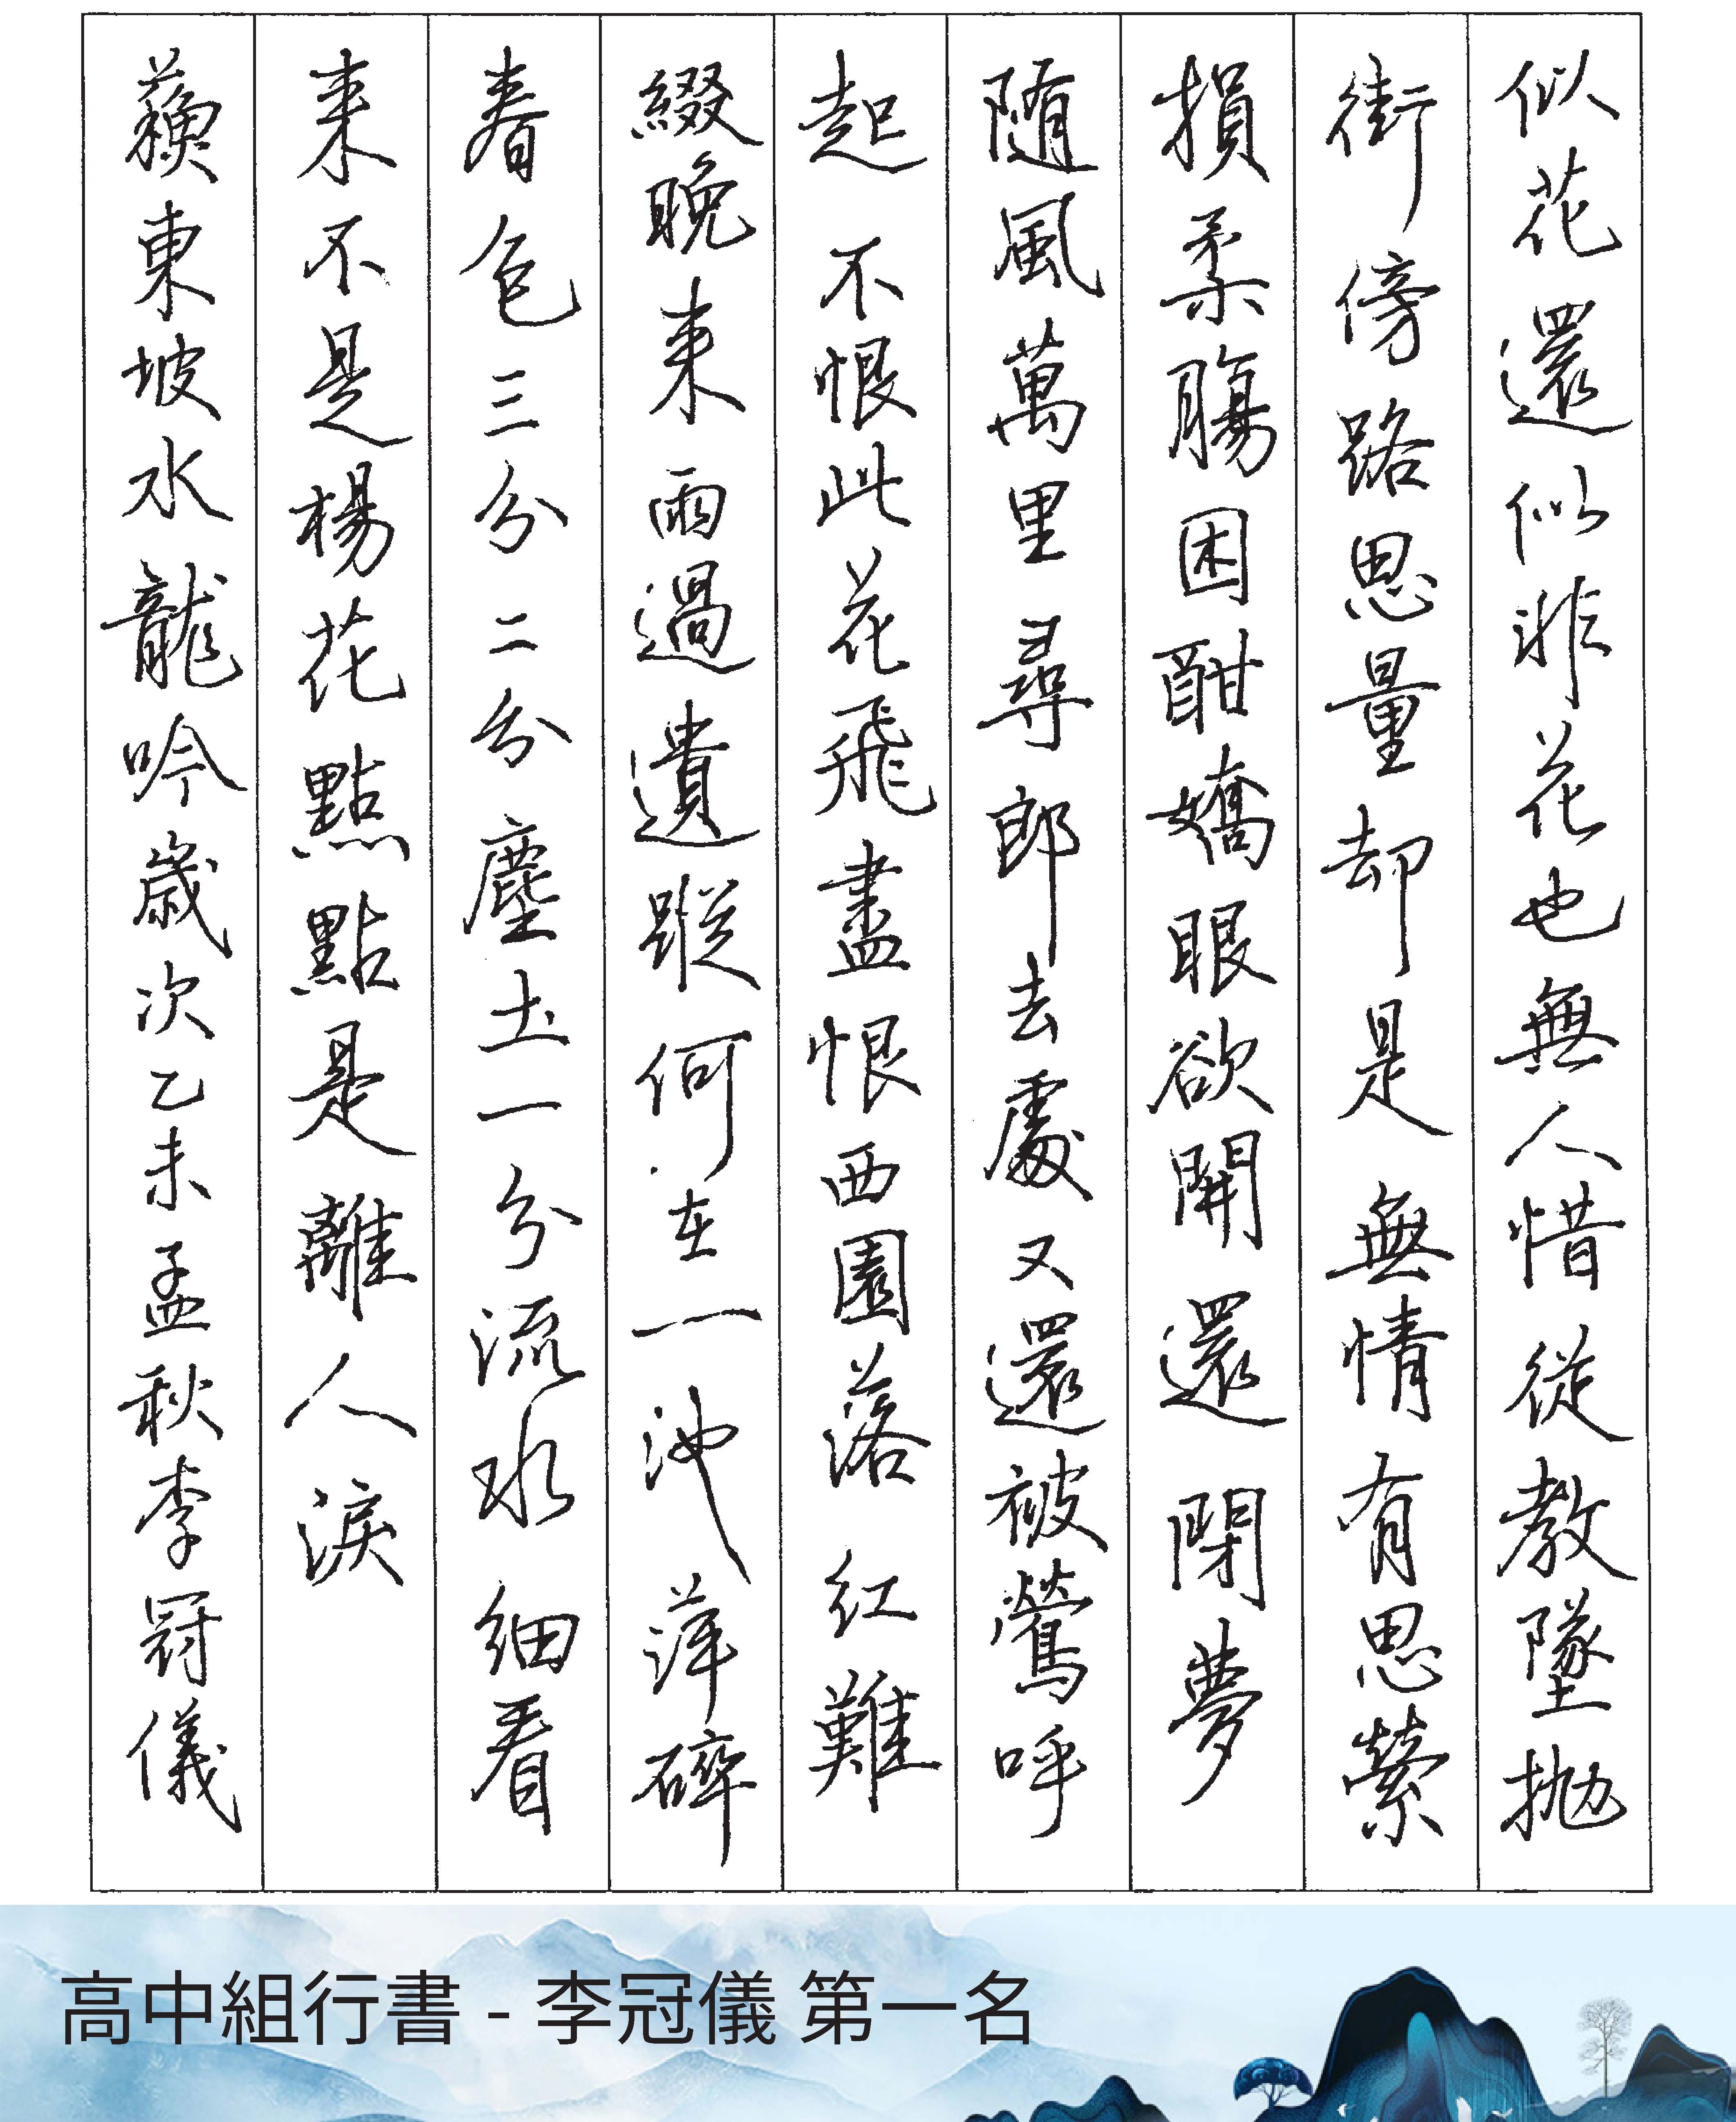 似花還似非花也無人惜從教墜拋
街傍路思量却是無情有思縈
損柔腸困酣嬌眼欲開還閉夢
隨風萬里尋郎去處又還被鶯呼
起不恨此花飛盡恨西園落紅難
綴晚來雨過遺蹤何在一池萍碎
春色三分二分塵土一分流水細看
來不是楊花點點是離人淚
蘇東坡水龍吟歲次乙未孟秋李冠儀
高中組行書 - 李冠儀 第一名